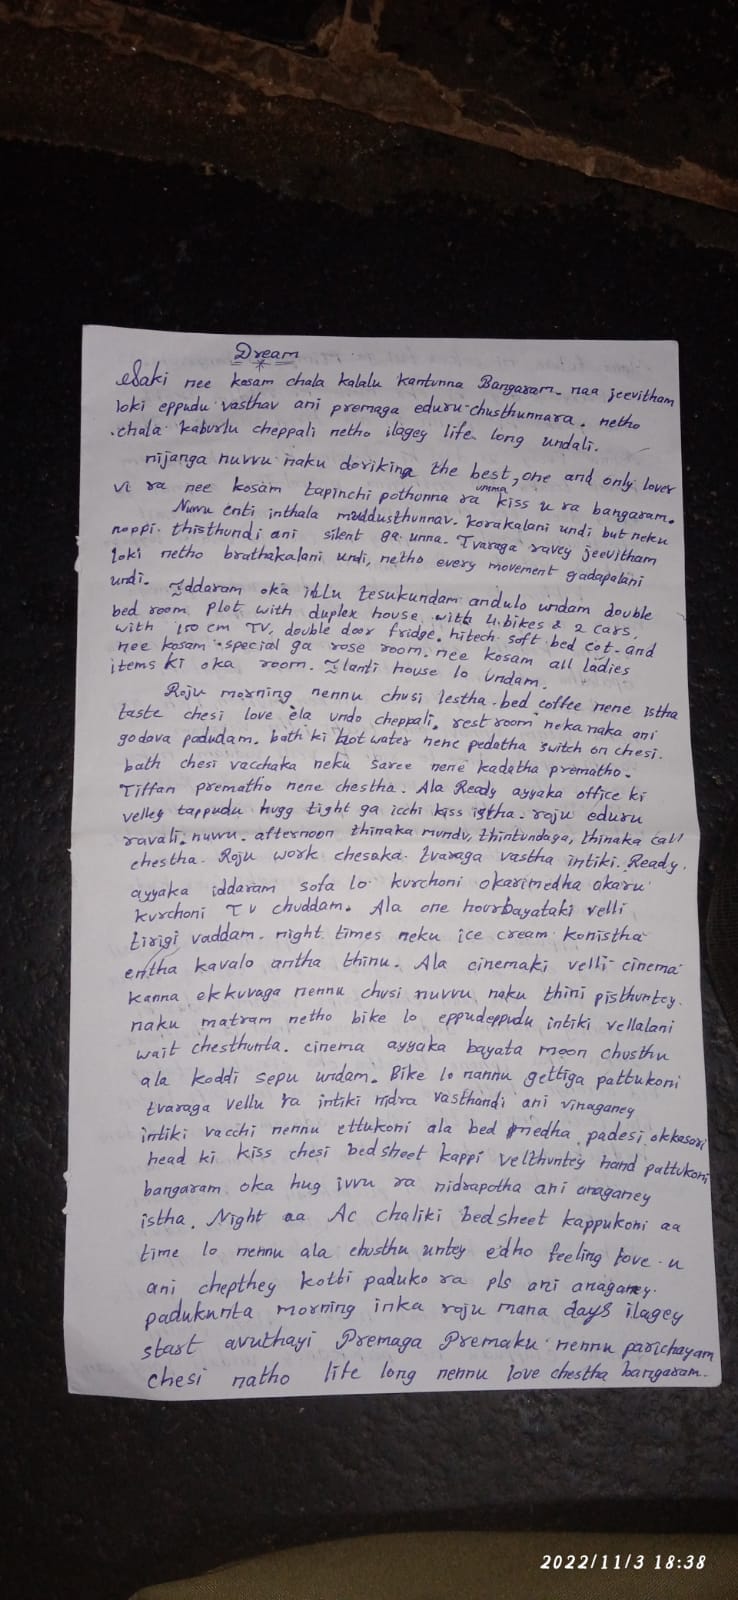 Dream
Saki nee kosam chala kalalu kantunna Bangaram. naa jeevitham
loki eppudu vasthav ani premaga eduru chusthunnara. netho
chala kaburlu cheppali netho ilagey life long undali.
nijanga nuvvu naku doriking the best, one and only lover
vi ra nee kosam tapinchi pothunna ra umma kiss u ra bangaram.
Nuvu enti inthala muddusthunnav. korakalani undi but neku
noppi thisthundi ani silent ga unna. Tvaraga ravey jeevitham
loki netho brathakalani undi, netho every movement gadapalani
undi. Iddaram oka illu tesukundam andulo undam double
bed room plot with duplex house with 4 bikes & 2 cars,
with 150 cm TV, double door fridge, hitech soft bed cot and
nee kosam special ga rose room. nee kosam all ladies
items ki oka room. Ilanti house lo undam.
Roju morning nennu chusi lestha bed coffee nene istha
taste chesi love ela undo cheppali, rest room neka naka ani
godava padudam. bath ki hot water nene pedatha switch on chesi.
bath chesi vacchaka neku saree nene kadatha prematho.
Tiffan prematho nene chestha. Ala Ready ayyaka office ki
velley tappudu hugg tight ga icchi kiss istha. roju eduru
ravali nuvu. afternoon thinaka mundu, thintundaga, thinaka call
chestha. Roju work chesaka tvaraga vastha intiki. Ready
ayyaka iddaram sofa lo kurchoni okarimedha okaru
kurchoni TV chuddam. Ala one hour bayataki velli
tirigi vaddam. night times neku ice cream konistha
entha kavalo antha thinu. Ala cinemaki velli cinema
kanna ekkuvaga nennu chusi nuvvu naku thini pisthuntey.
naku matram netho bike lo eppudeppudu intiki vellalani
wait chesthunta. cinema ayyaka bayata moon chusthu
ala koddi sepu undam. Bike lo nannu gettiga pattukoni
tvaraga vellu ra intiki nidra vasthundi ani vinaganey
intiki vacchi nennu ettukoni ala bed medha padesi okkasari
head ki kiss chesi bedsheet kappi velthuntey hand pattukoni
bangaram oka hug ivvu ra nidrapotha ani anaganey
istha. Night aa Ac chaliki bedsheet kappukoni aa
time lo nennu ala chusthu untey edho feeling love u
ani chepthey kotti paduko ra pls ani anaganey.
padukunta morning inka roju mana days ilagey
start avuthayi Premaga Premaku nennu parichayam
chesi natho life long nennu love chestha bangaram.
2022/11/3 18:38